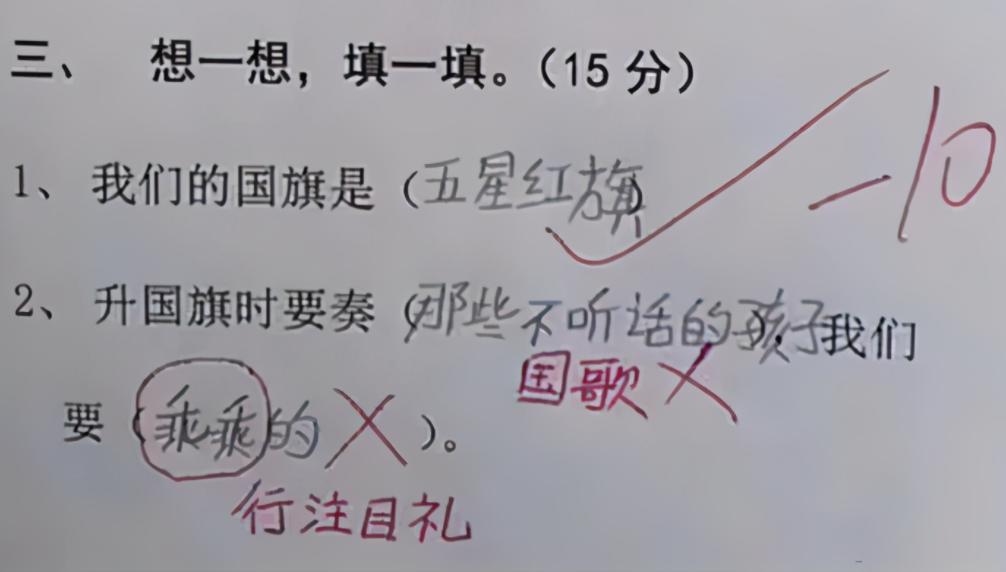 三、 想一想，填一填。（15 分）
1、我们的国旗是（五星红旗）
-10
2、升国旗时要奏（那些不听话的孩子），我们
国歌
要（乖乖的）。
行注目礼